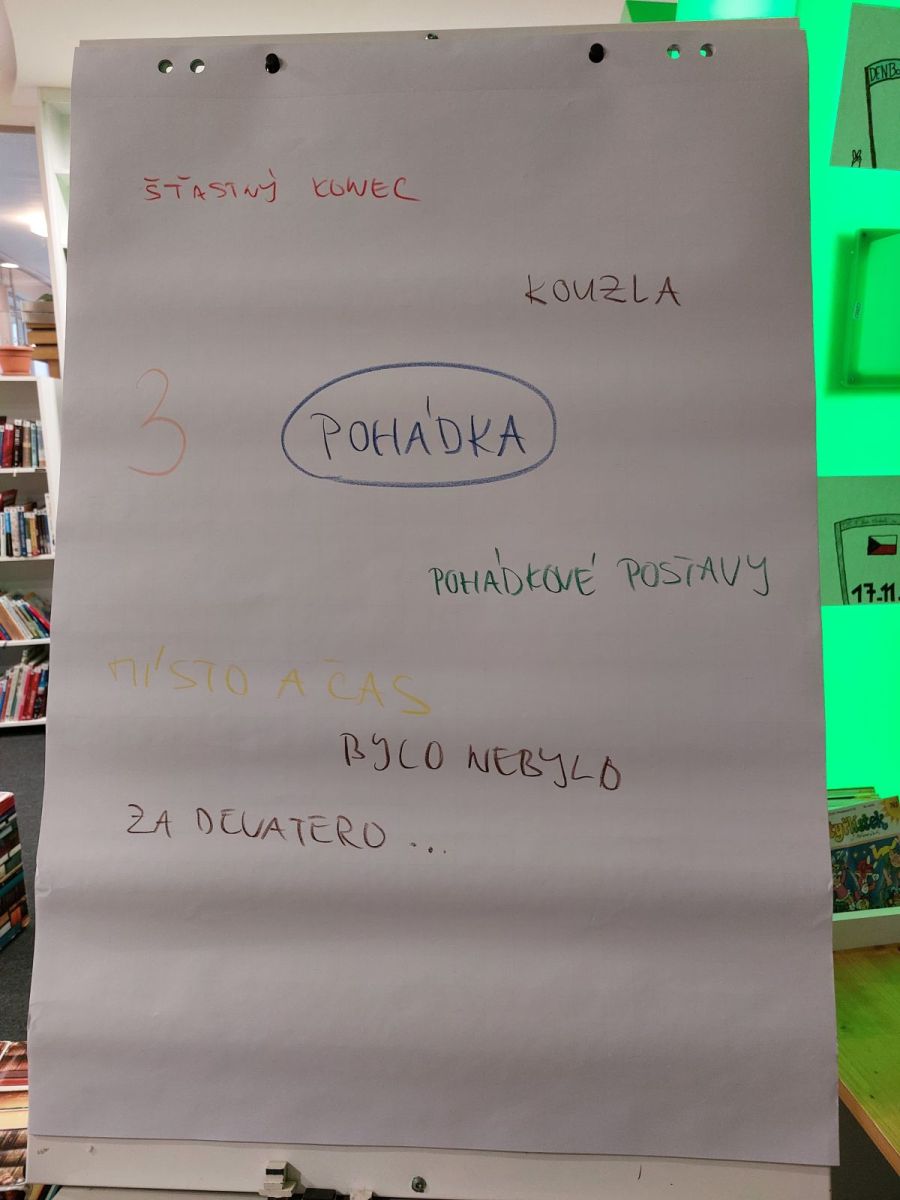 ŠŤASTNÝ KONEC
KOUZLA
3
POHÁDKA
POHÁDKOVÉ POSTAVY
MÍSTO A ČAS
BYLO NEBYLO
ZA DEVATERO ...
17.11.